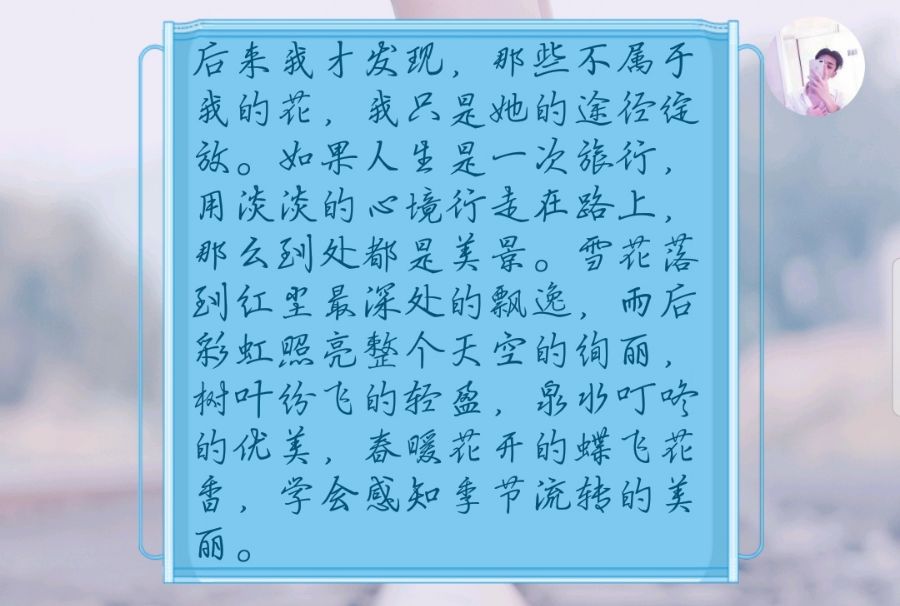 后来我才发现，那些不属于
我的花，我只是她的途径绽
放。如果人生是一次旅行，
用淡淡的心境行走在路上，
那么到处都是美景。雪花落
到红尘最深处的飘逸，雨后
彩虹照亮整个天空的绚丽，
树叶纷飞的轻盈，泉水叮咚
的优美，春暖花开的蝶飞花
香，学会感知季节流转的美
丽。